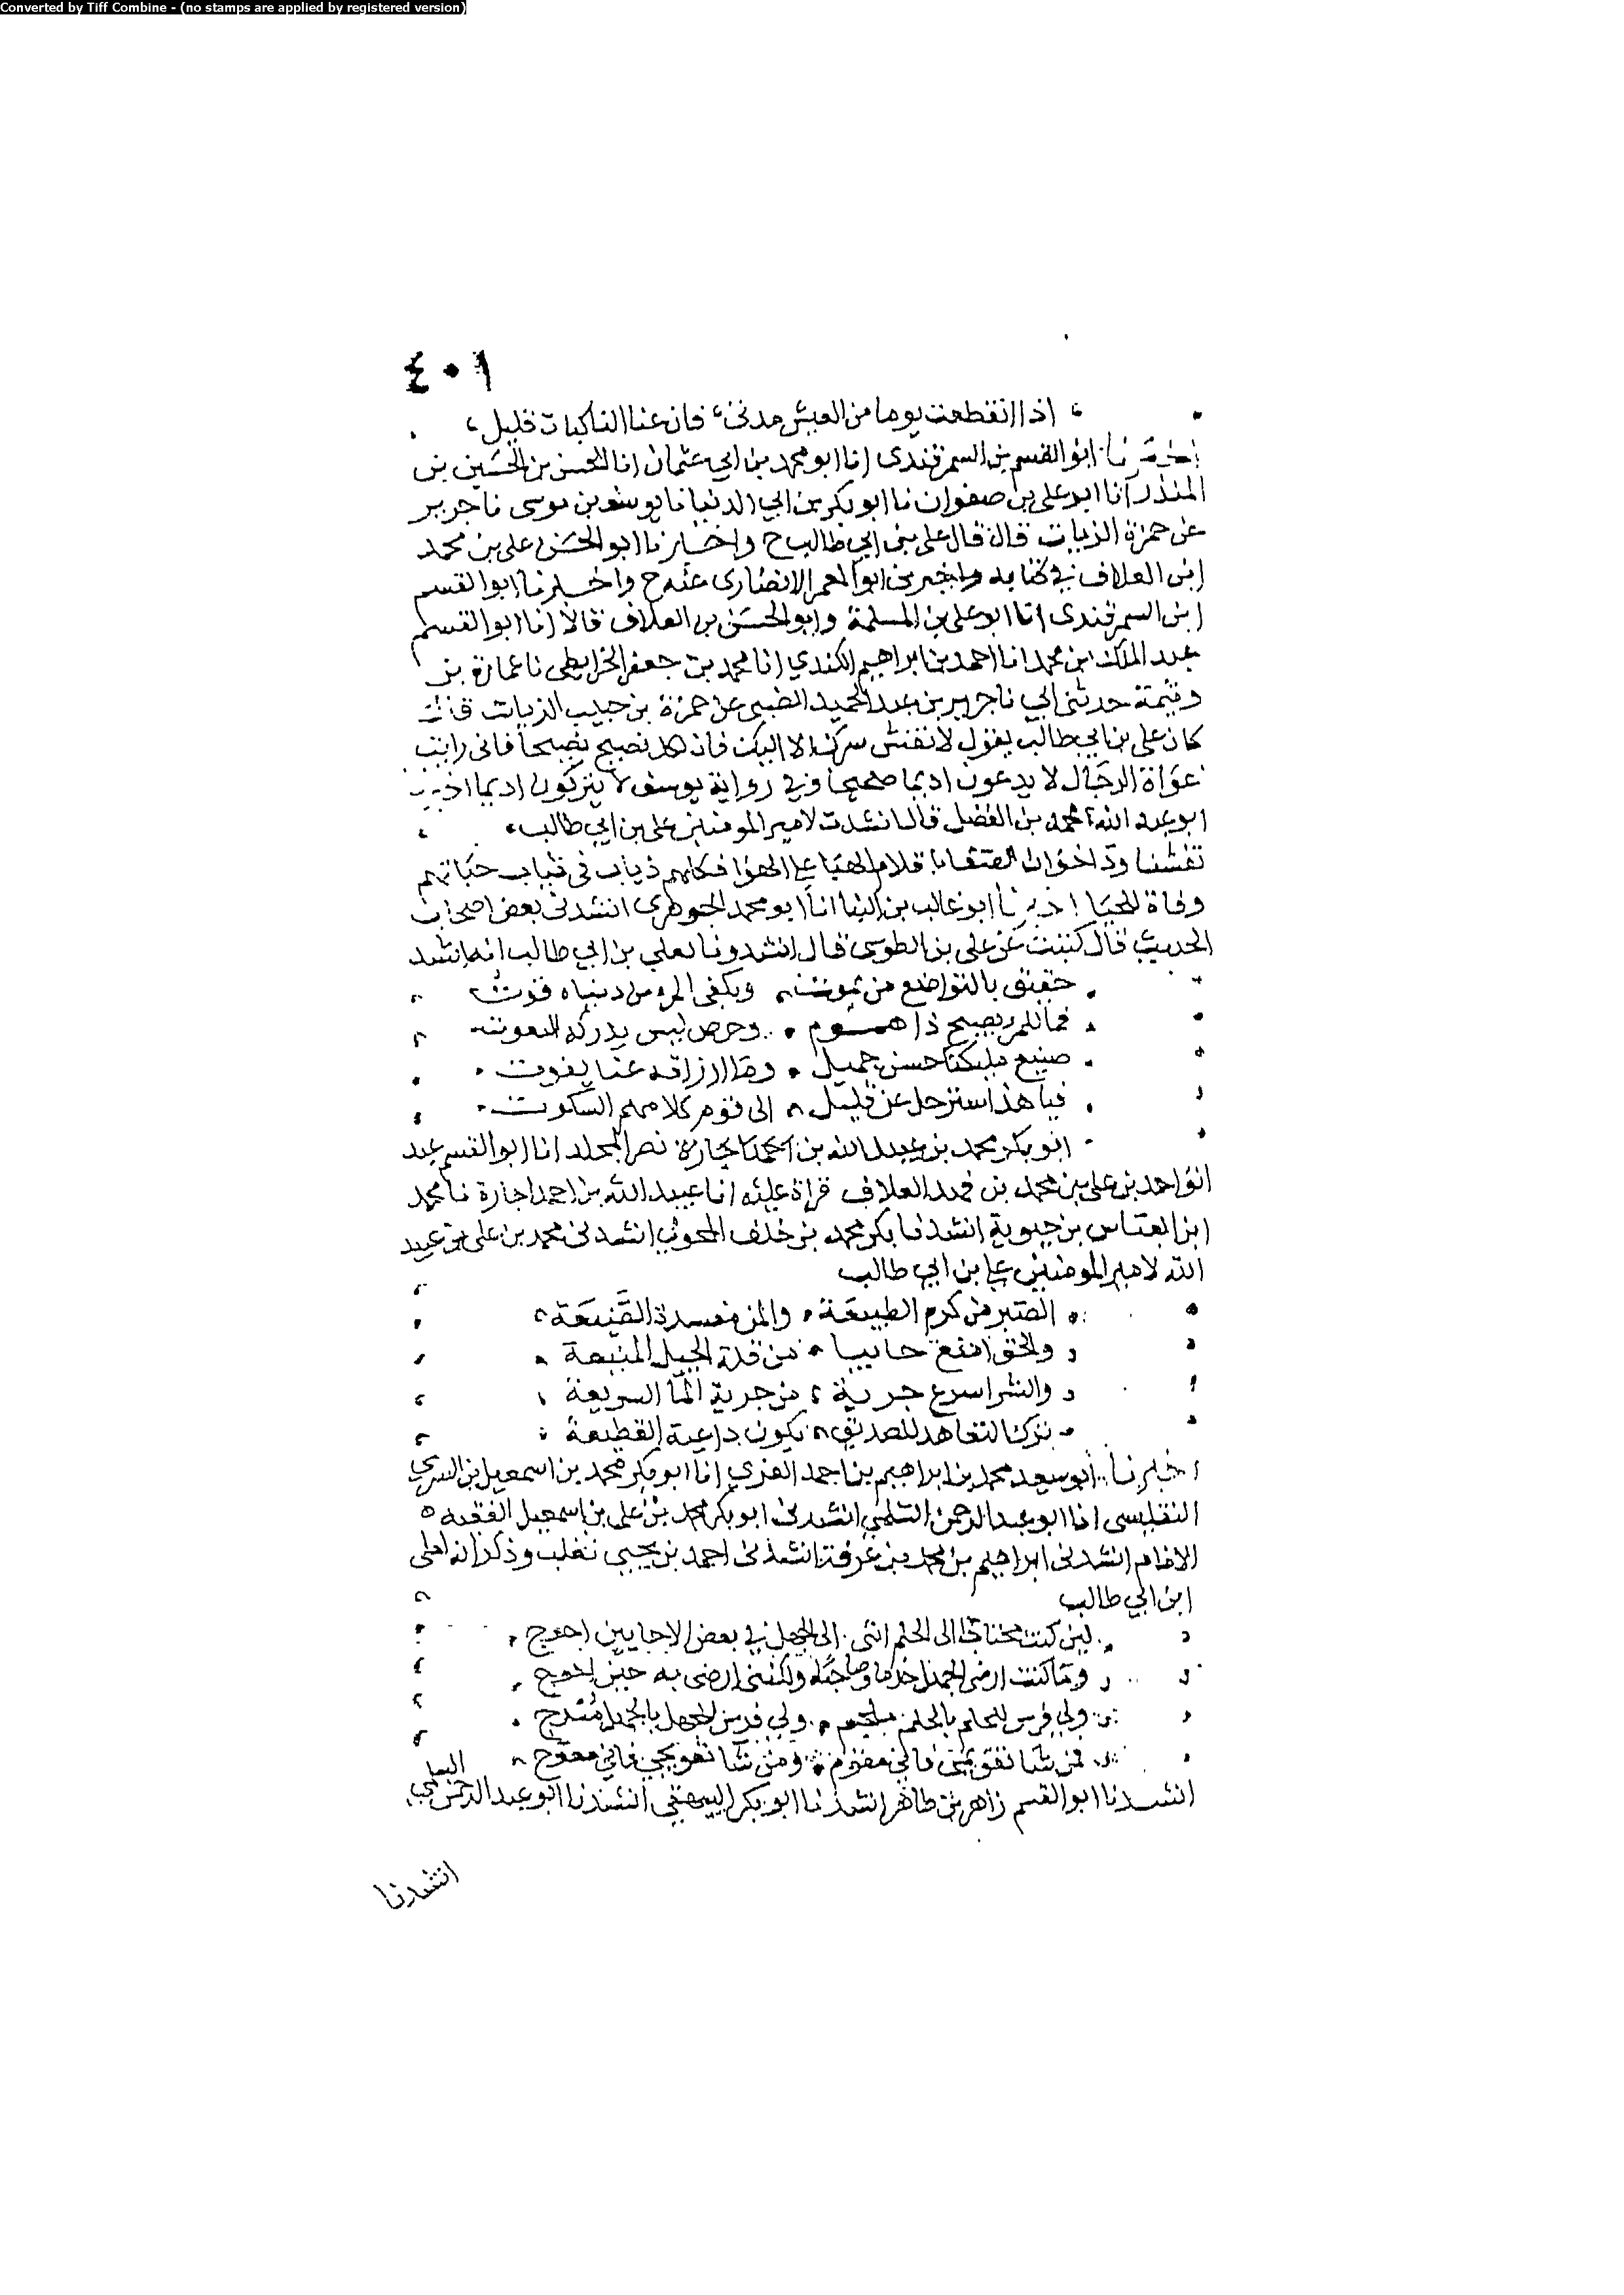 Converted by Tiff Combine - (no stamps are applied by registered version)
٤٠١
اذا انقطعت يوما من العيش مدتي فان عنا الباكيات قليل
اخبرنا ابو القسم بن السمرقندي انا ابو محمد بن ابي عثمان انا الحسن بن الحسين بن
المنذر انا ابو علي بن صفوان نا ابو بكر بن ابي الدنيا نا يوسف بن موسى نا جرير
عن حمزة الزيات قال قال علي بن ابي طالب ح واخبرنا ابو الحسن علي بن محمد
ابن العلاف في كتابه واخبرني ابو المعمر الانصاري عنه ح واخبرنا ابو القسم
ابن السمرقندي انا ابو علي بن المسلمة وابو الحسن بن العلاف قالا انا ابو القسم
عبد الملك بن محمد انا احمد بن ابراهيم الكندي انا محمد بن جعفر الخرايطي نا عمارة بن
وثيمة حدثني ابي نا جرير بن عبد الحميد الضبي عن حمزة بن حبيب الزيات قال
كان علي بن ابي طالب يقول لا تفش سرك الا اليك فان لكل نصيح نصيحا فاني رايت
غواة الرجال لا يدعون اديما صحيحا وفي رواية يوسف لا يتركون اديما
ابو عبد الله محمد بن الفضل قال انشدت لامير المومنين علي بن ابي طالب
ود اخوان الصفا ذياب في ثياب
وفاة للحيا ابو غالب بن البنا انا ابو محمد الجوهري انشدني بعض اصحاب
الحديث قال كتبت عن علي بن الطوسي قال انشدونا لعلي بن ابي طالب انه انشد
حقيق بالتواضع من يموت ويكفي المرء من دنياه قوت
فما للمرء يصبح ذا هموم وحرص ليس يدركه النعوت
صنيع مليكنا حسن جميل وما ارزاقه عنا يفوت
فيا هذا سترحل عن قليل الى قوم كلامهم السكوت
ابو بكر محمد بن عبيد الله بن نصر انا ابو القسم عبد
احمد بن علي بن محمد بن العلاف قراة عليه انا عبيد الله بن احمد اجازة نا محمد
ابن العباس بن حيوية انشدنا بكر محمد بن خلف انشدني محمد بن علي بن عبيد
الله لامير المومنين علي بن ابي طالب
الصبر من كرم الطبيعة والمن مفسدة الصنيعة
والحق امنع جانبا من قلة الجبل المنيعة
والشر اسرع جرية من جرية الما السريعة
ترك التعاهد للصديق يكون داعية القطيعة
اخبرنا ابو سعيد محمد بن ابراهيم بن احمد الغزي انا ابو بكر محمد بن اسمعيل بن السري
التفليسي انا ابو عبد الرحمن السلمي انشدني ابو بكر محمد بن علي بن اسمعيل الفقيه
الامام انشدني ابراهيم بن محمد بن عرفة انشدني احمد بن يحيى ثعلب وذكر انه لعلي
ابن ابي طالب
لين كنت محتاجا الى الحلم انني الى الجهل في بعض الاحايين احوج
وما كنت ارضى الجهل خدنا وصاحبا ولكنني ارضى به حين احوج
ولي فرس للحلم بالحلم ملجم ولي فرس للجهل بالجهل مسرج
فمن شا تقويمي فاني مقوم ومن شا تعويجي فاني معوج
انشدنا ابو القسم زاهر بن طاهر انشدنا ابو بكر البيهقي انشدنا ابو عبد الرحمن السلمي
انشدنا